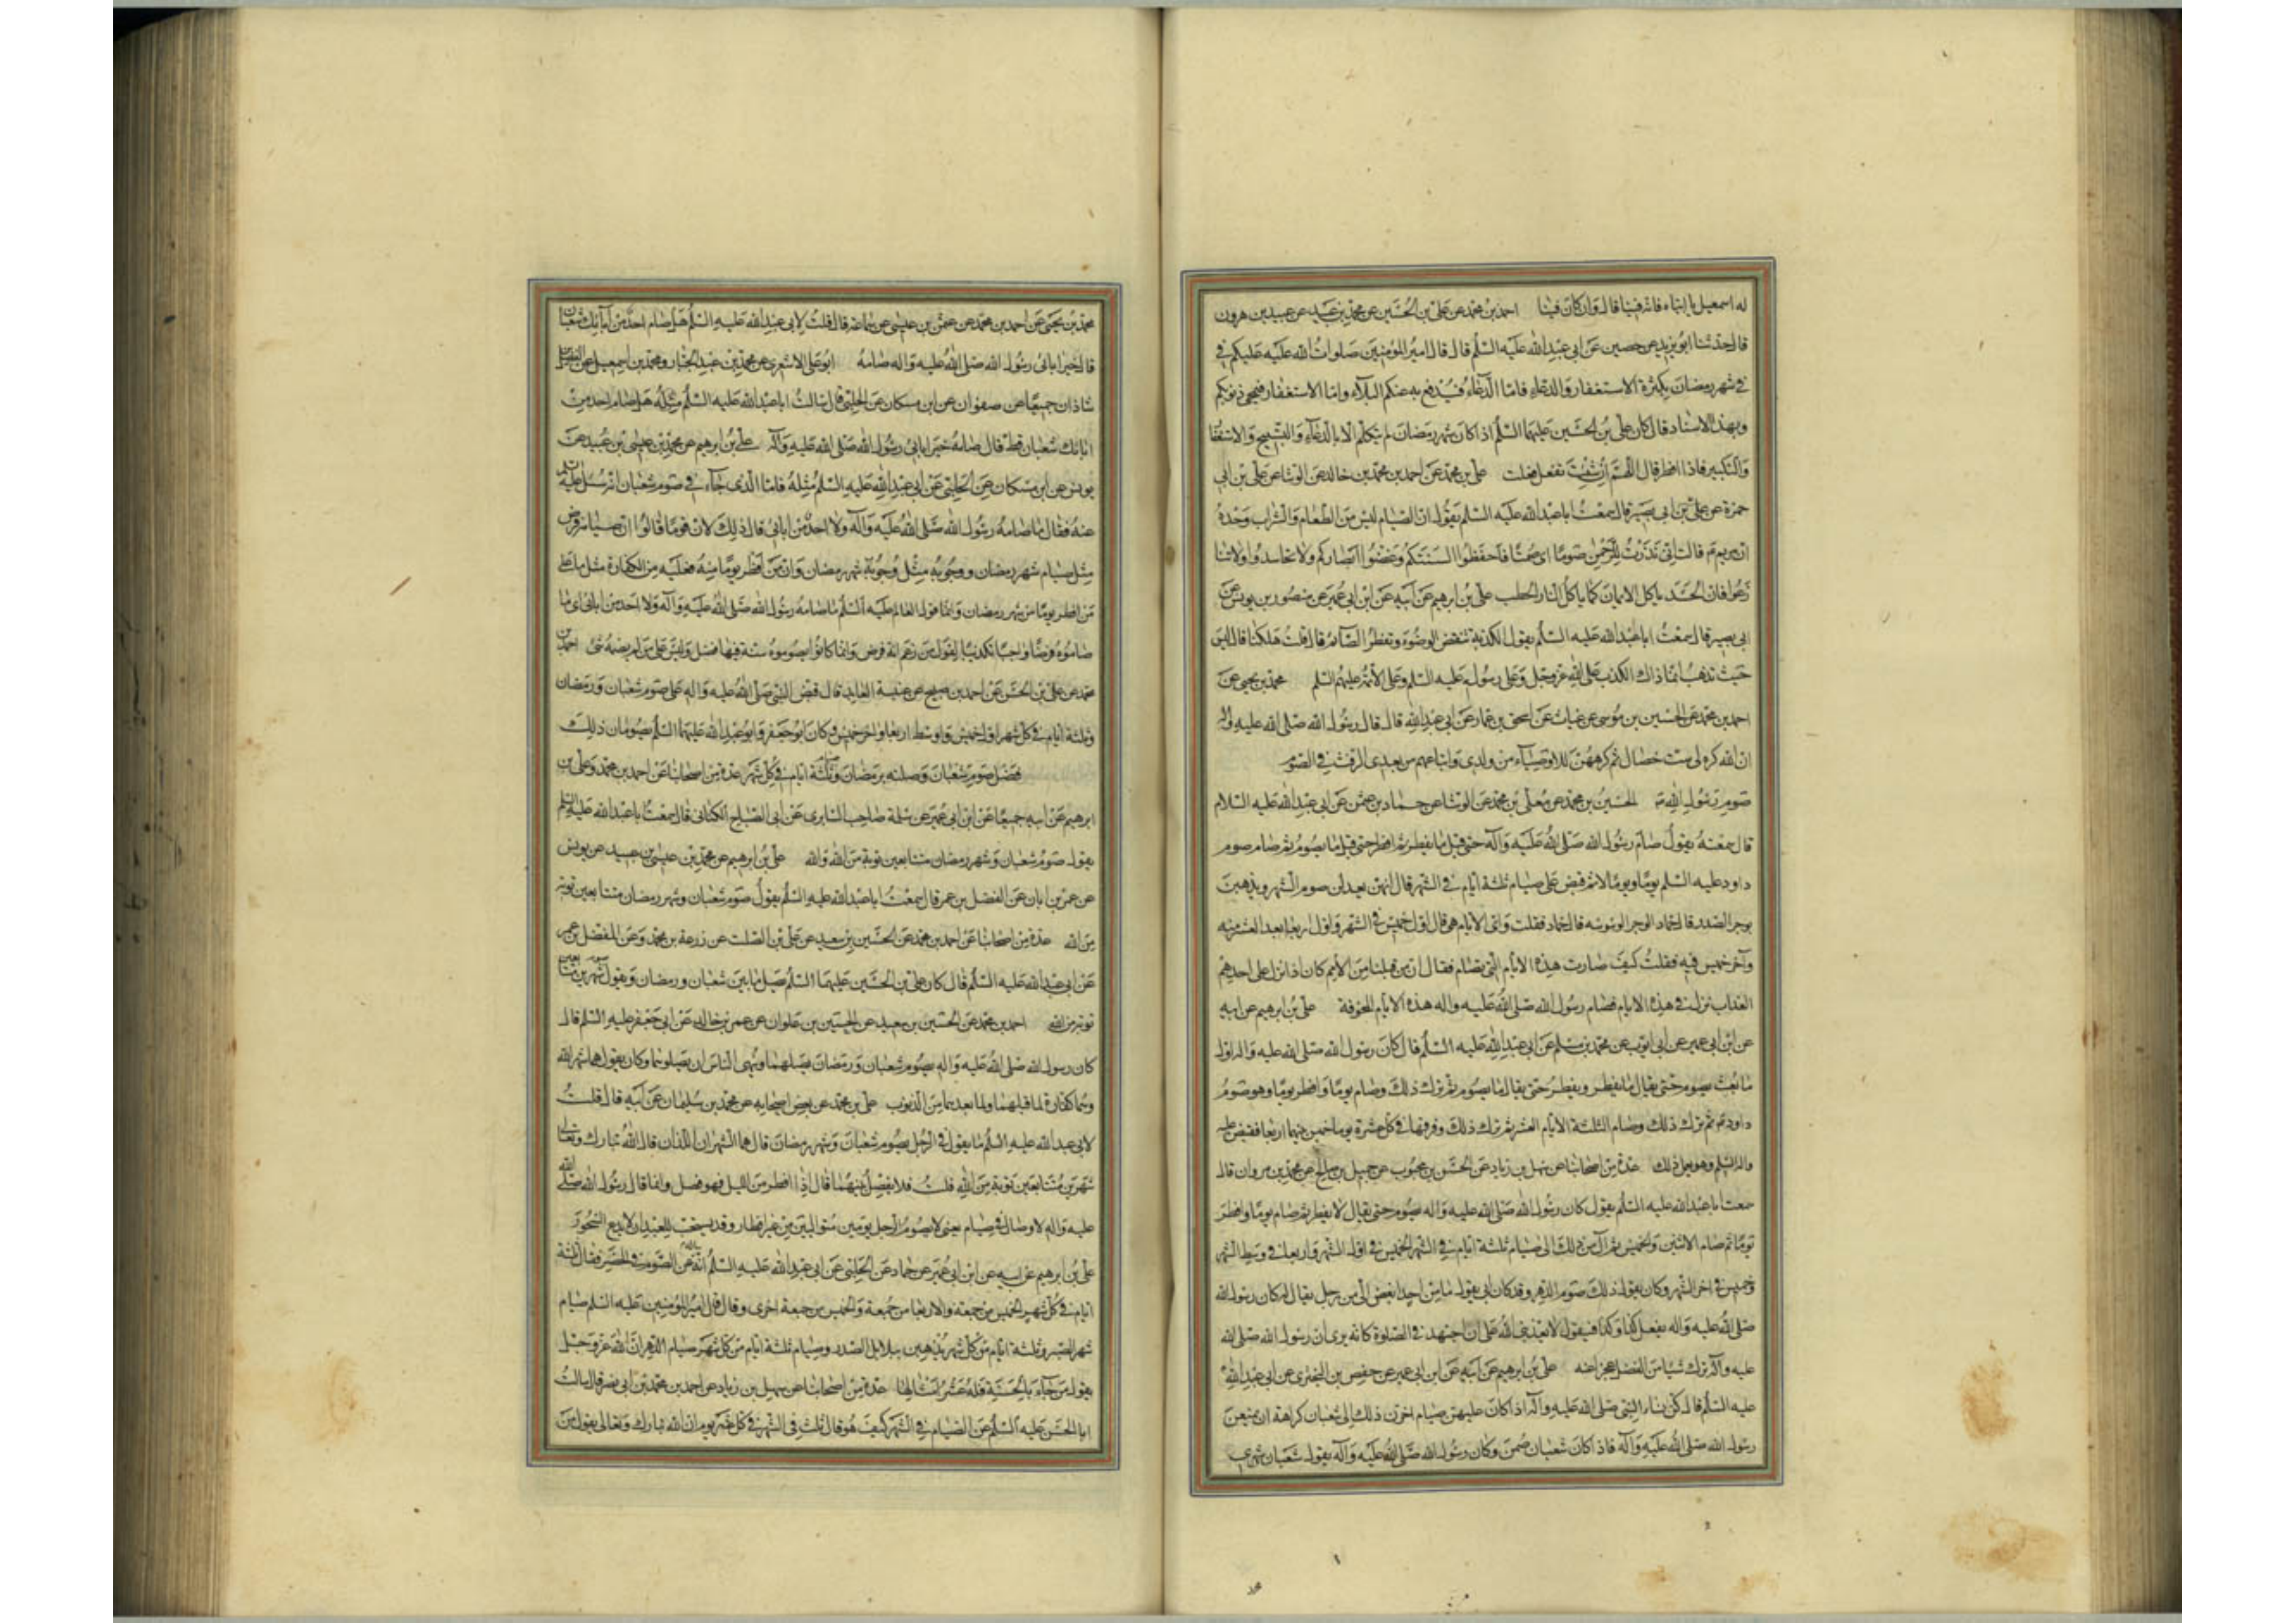 له اسمعيل يا ابتاه فانه فينا قال وان كان فينا احمد بن محمد عن علي بن الحسين عن محمد بن عبيد عن عبيد بن هرون
قال حدثنا ابو يزيد عن حصين عن ابي عبد الله عليه السلم قال قال امير المؤمنين صلوات الله عليه عليكم في
في شهر رمضان بكثرة الاستغفار والدعاء فاما الدعاء فيدفع به عنكم البلاء واما الاستغفار فيمحى ذنوبكم
وبهذا الاسناد قال كان علي بن الحسين عليهما السلم اذا كان شهر رمضان لم يتكلم الا بالدعاء والتسبيح والاستغفا
والتكبير فاذا افطر قال اللهم ان شئت تفعل فعلت علي بن محمد عن احمد بن محمد بن خالد عن الوشا عن علي بن ابي
حمزة عن علي بن ابي بصير قال سمعت ابا عبد الله عليه السلم يقول ان الصيام ليس من الطعام والشراب وحده
ان مريم قالت اني نذرت للرحمن صوما اي صمتا فاحفظوا السنتكم وغضوا ابصاركم ولا تحاسدوا ولا تنا
زعوا فان الحسد ياكل الايمان كما ياكل النار الحطب علي بن ابرهيم عن ابيه عن ابن ابي عمير عن منصور بن يونس عن
ابي بصير قال سمعت ابا عبد الله عليه السلم يقول الكذبة تنقض الوضوء وتفطر الصائم قال قلت هلكنا قال ليس
حيث تذهب انما ذاك الكذب على الله عز وجل وعلى رسوله عليه السلم وعلى الائمة عليهم السلم محمد بن يحيى عن
احمد بن محمد عن الحسين بن موسى عن غياث عن اسحق بن عمار عن ابي عبد الله قال قال رسول الله صلى الله عليه واله
ان الله كره لي ست خصال ثم كرههن للاوصياء من ولدي واتباعهم من بعدي الرفث في الصوم
صوم رسول الله الحسين بن محمد عن معلى بن محمد عن الوشا عن حماد بن عثمن عن ابي عبد الله عليه السلام
قال سمعته يقول صام رسول الله صلى الله عليه وآله حتى قيل ما يفطر ثم افطر حتى قيل ما يصوم ثم صام صوم
داود عليه السلم يوما ويوما لا ثم قبض على صيام ثلثة ايام في الشهر قال انهن يعدلن صوم الشهر ويذهبن
بوحر الصدر قال حماد الوحر الوسوسه قال حماد فقلت واي الايام هي قال اول خميس في الشهر واول اربعا بعد العشر منه
وآخر خميس فيه فقلت كيف صارت هذه الايام التي تصام فقال ان من قبلنا من الامم كان اذا نزل على احدهم
العذاب نزلت في هذه الايام فصام رسول الله صلى الله عليه واله هذه الايام المخوفة علي بن ابرهيم عن ابيه
عن ابن ابي عمير عن ابي ايوب عن محمد بن مسلم عن ابي عبد الله عليه السلم قال كان رسول الله صلى الله عليه واله اول
ما بعث يصوم حتى يقال ما يفطر ويفطر حتى يقال ما يصوم ثم ترك ذلك وصام يوما وافطر يوما وهو صوم
داود ثم ترك ذلك وصام الثلثة الايام الغر ثم ترك ذلك وفرقها في كل عشرة يوما خميسن بينهما اربعا فقبض عليه
واله السلم وهو يعمل ذلك عدة من اصحابنا عن سهل بن زياد عن الحسن بن محبوب عن جميل بن صالح عن محمد بن مروان قال
سمعت ابا عبد الله عليه السلم يقول كان رسول الله صلى الله عليه واله يصوم حتى يقال لا يفطر ثم صام يوما وافطر
يوما ثم صام الاثنين والخميس ثم آل من ذلك الى صيام ثلثة ايام في الشهر الخميس في اول الشهر واربعا في وسط الشهر
وخميس في اخر الشهر وكان يقول ذلك صوم الدهر وقد كان ابي يقول ما من احد ابغض الي من رجل يقال له كان رسول الله
صلى الله عليه واله يفعل كذا وكذا فيقول لا يعذبني الله على ان اجتهد في الصلوة كانه يرى ان رسول الله صلى الله
عليه وآله ترك شيئا من الفضل عجزا عنه علي بن ابرهيم عن ابيه عن ابن ابي عمير عن حفص بن البختري عن ابي عبد الله
عليه السلم قال كن نساء النبي صلى الله عليه وآله اذا كان عليهن صيام اخرن ذلك الى شعبان كراهة ان يمنعن
رسول الله صلى الله عليه وآله فاذا كان شعبان صمن وكان رسول الله صلى الله عليه وآله يقول شعبان شهري
محمد بن يحيى عن احمد بن محمد عن عثمن بن عيسى عن سماعة قال قلت لابي عبد الله عليه السلم هل صام احد من آبائك شعبان
قال خير ابائي رسول الله صلى الله عليه واله صامه ابو علي الاشعري عن محمد بن عبد الجبار ومحمد بن اسمعيل عن الفضل
شاذان جميعا عن صفوان عن ابن مسكان عن الحلبي قال سالت ابا عبد الله عليه السلم مثله هل صام احد من
ابائك شعبان قط قال صامه خير ابائي رسول الله صلى الله عليه وآله علي بن ابرهيم عن محمد بن عيسى بن عبيد عن
يونس عن ابن مسكان عن الحلبي عن ابي عبد الله عليه السلم مثله فاما الذي جاء في صوم شعبان انه سئل عليه السلم
عنه فقال ما صامه رسول الله صلى الله عليه وآله ولا احد من ابائي قال ذلك لان قوما قالوا ان صيامه فرض
مثل صيام شهر رمضان ووجوبه مثل وجوب شهر رمضان وان من افطر يوما منه فعليه من الكفارة مثل ما على
من افطر يوما من شهر رمضان وانما قول العالم عليه السلم ما صامه رسول الله صلى الله عليه وآله ولا احد من ابائي اي ما
صاموه فرضا واجبا تكذيبا لقول من زعم انه فرض وانما كانوا يصوموه سنة فيها فضل وليس على من لم يصمه شئ احمد بن
محمد عن علي بن الحسن عن احمد بن صبيح عن عنبسة العابد قال قبض النبي صلى الله عليه واله على صوم شعبان ورمضان
وثلثة ايام في كل شهر اول خميس واوسط اربعا واخر خميس وكان ابو جعفر وابو عبد الله عليهما السلم يصومان ذلك
فضل صوم شعبان وصلته برمضان وثلثة ايام في كل شهر عدة من اصحابنا عن احمد بن محمد وعلي بن
ابرهيم عن ابيه جميعا عن ابن ابي عمير عن سلمة صاحب السابري عن ابي الصباح الكناني قال سمعت ابا عبد الله عليه السلم
يقول صوم شعبان وشهر رمضان متتابعين توبة من الله والله علي بن ابرهيم عن محمد بن عيسى بن عبيد عن يونس
عن عمر بن ابان عن المفضل بن عمر قال سمعت ابا عبد الله عليه السلم يقول صوم شعبان وشهر رمضان متتابعين توبة
من الله عدة من اصحابنا عن احمد بن محمد عن الحسين بن سعيد عن علي بن الصلت عن زرعة بن محمد وعن المفضل بن عمر
عن ابي عبد الله عليه السلم قال كان علي بن الحسين عليهما السلم يصل ما بين شعبان ورمضان ويقول شهرين متتابعين
توبة من الله احمد بن محمد عن الحسين بن سعيد عن الحسين بن علوان عن عمرو بن خالد عن ابي جعفر عليه السلم قال
كان رسول الله صلى الله عليه واله يصوم شعبان ورمضان يصلهما وينهى الناس ان يصلوهما وكان يقول هما شهر الله
وهما كفارة لما قبلهما ولما بعدهما من الذنوب علي بن محمد عن بعض اصحابه عن محمد بن سليمان عن ابيه قال قلت
لابي عبد الله عليه السلم ما يقول في الرجل يصوم شعبان وشهر رمضان قال هما الشهران اللذان قال الله تبارك وتعالى
شهرين متتابعين توبة من الله قلت فلا يفصل بينهما قال اذا افطر من الليل فهو فصل وانما قال رسول الله صلى الله
عليه واله لا وصال في صيام يعني لا يصوم الرجل يومين متواليين من غير افطار وقد يستحب للعبد ان لا يدع السحور
علي بن ابرهيم عن ابيه عن ابن ابي عمير عن حماد عن الحلبي عن ابي عبد الله عليه السلم انه سئل عن الصوم في الحضر فقال ثلثة
ايام في كل شهر الخميس من جمعة والاربعا من جمعة والخميس من جمعة اخرى وقال قال امير المؤمنين عليه السلم صيام
شهر الصبر وثلثة ايام من كل شهر يذهبن ببلابل الصدر وصيام ثلثة ايام من كل شهر صيام الدهر ان الله عز وجل
يقول من جاء بالحسنة فله عشر امثالها عدة من اصحابنا عن سهل بن زياد عن احمد بن محمد بن ابي نصر قال سالت
ابا الحسن عليه السلم عن الصيام في الشهر كيف هو قال ثلث في الشهر في كل عشر يوم ان الله تبارك وتعالى يقول من